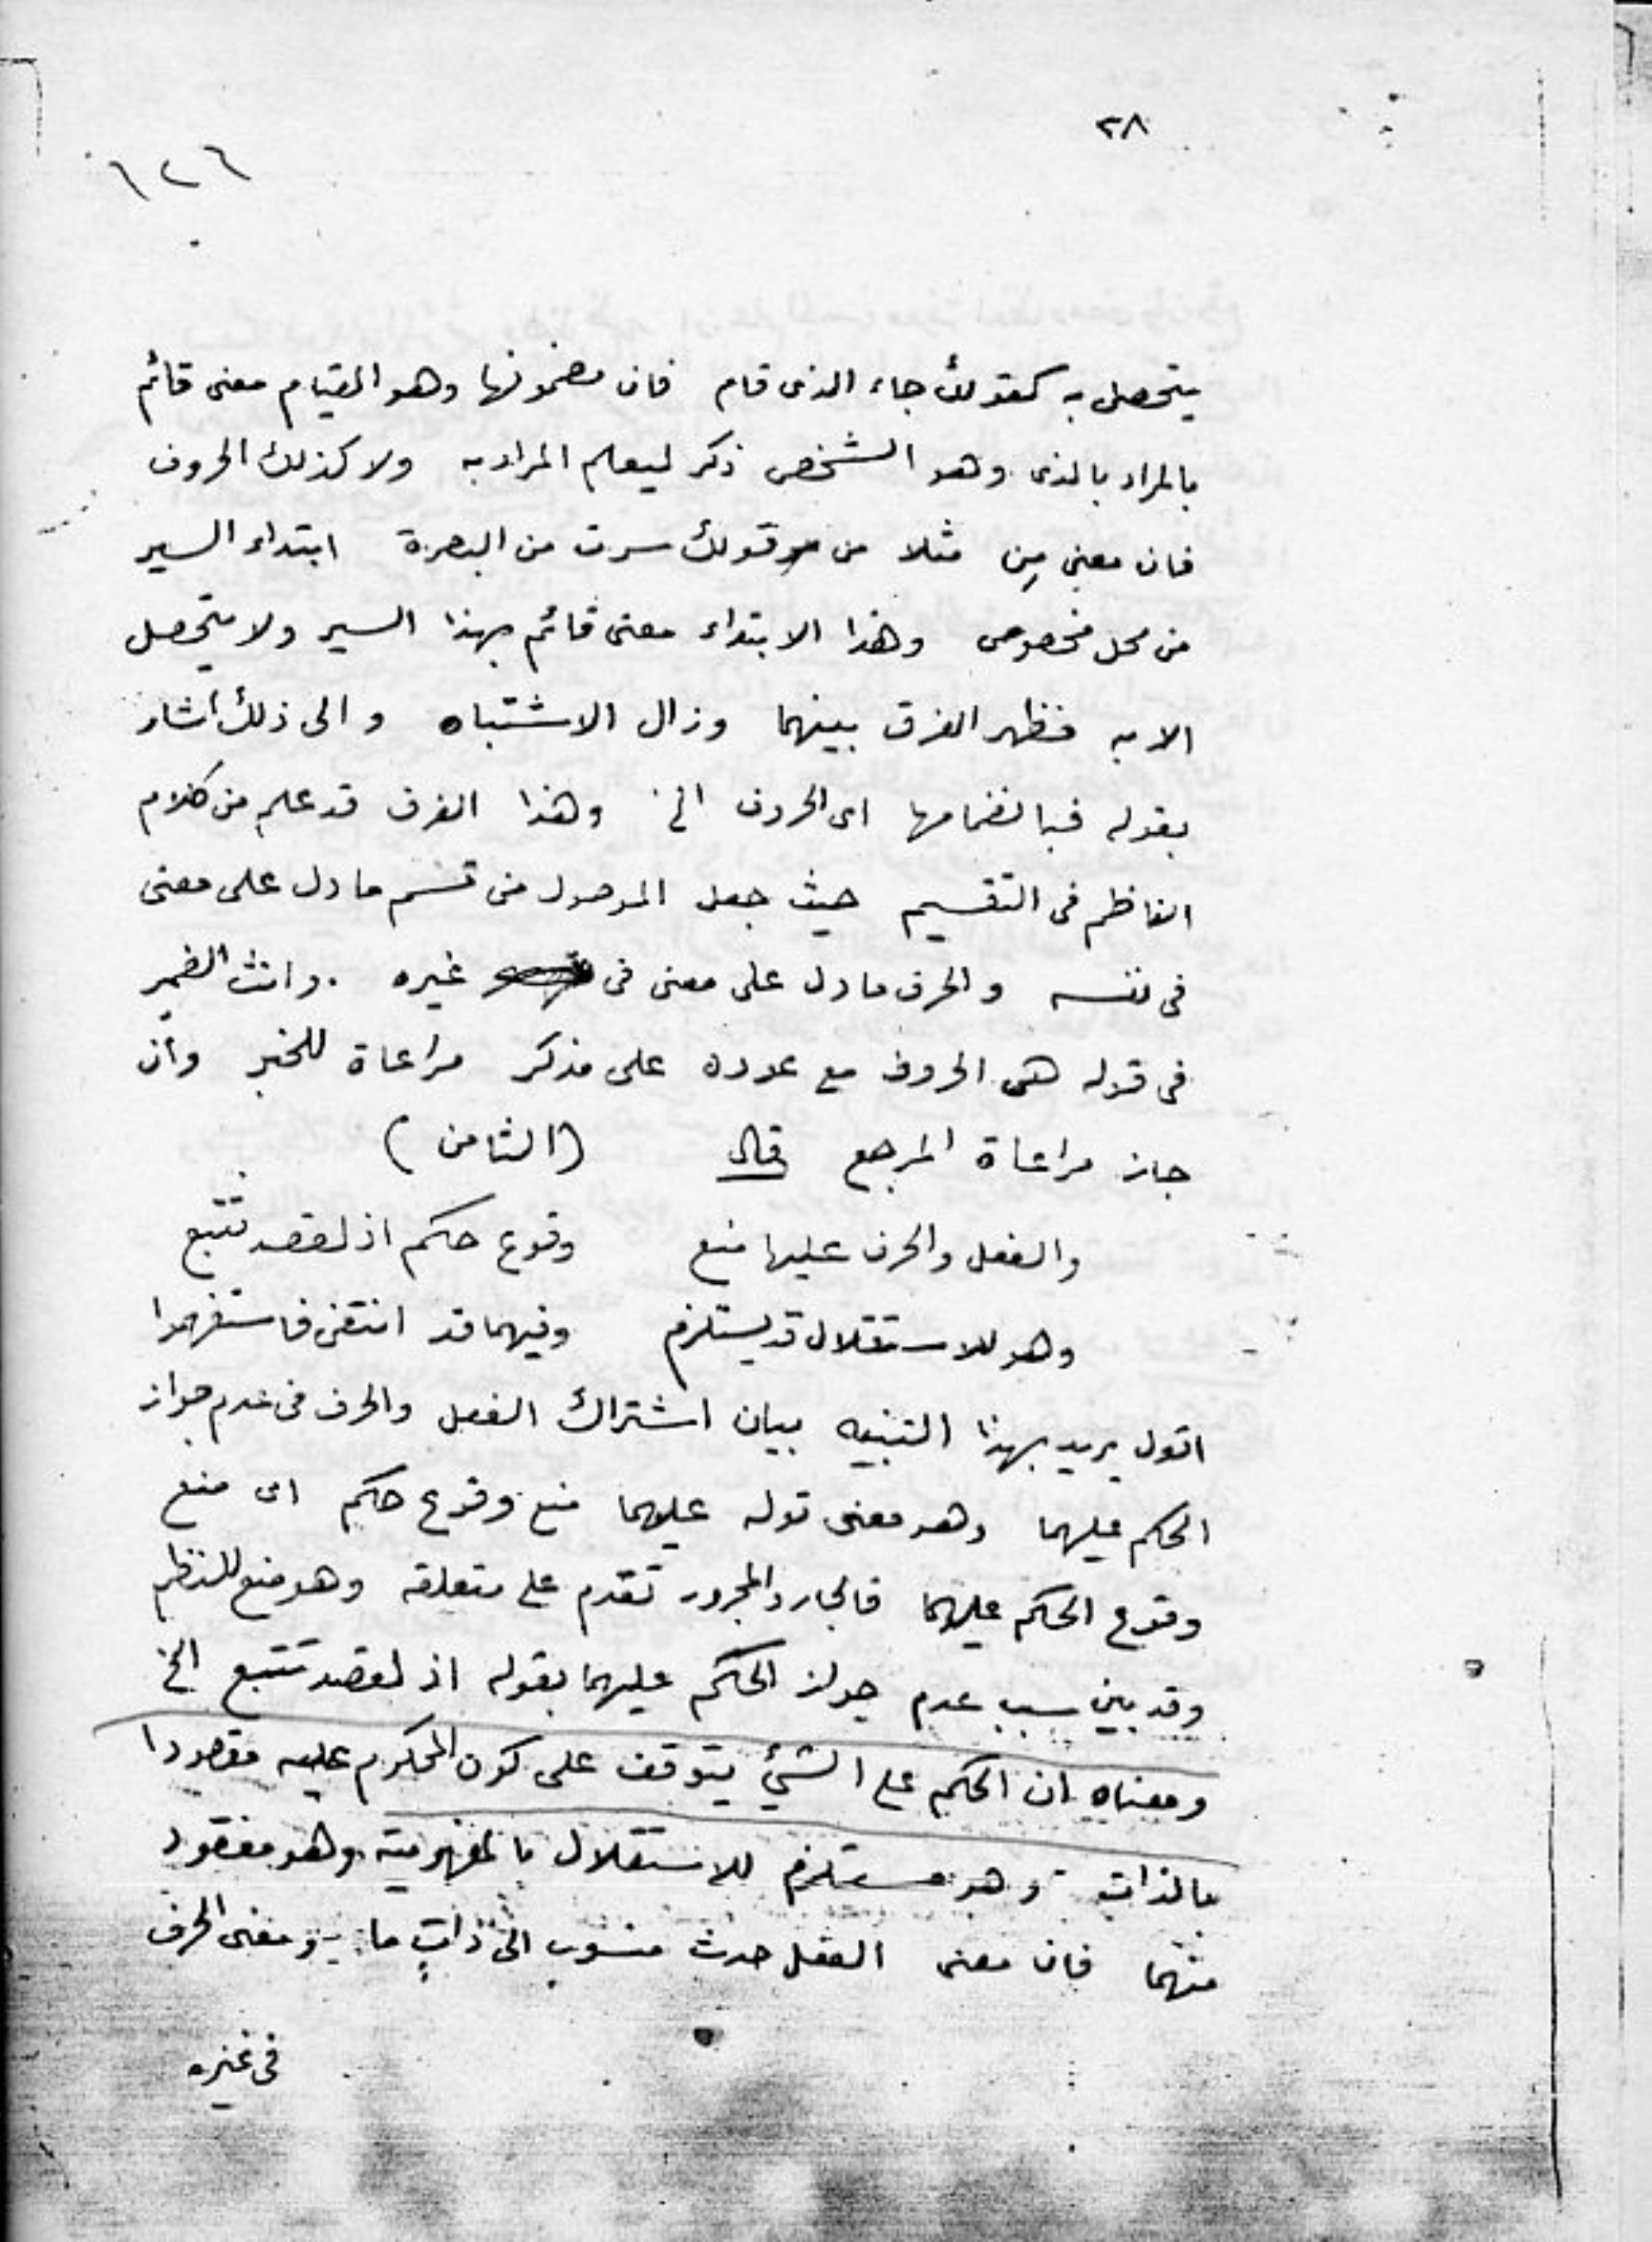 ٢٨
١٢٦
يتحصل به كقولك جاء الذى قام فان مضمونها وهو القيام معنى قائم
بالمراد بالذى وهو الشخص ذكر ليعلم المراد به ولا كذلك الحروف
فان معنى مِن مثلا من قولك سرت من البصرة ابتداء السير
من محل مخصوص وهذا الابتداء معنى قائم بهذا السير ولا يتحصل
الا به فظهر الفرق بينهما وزال الاشتباه والى ذلك اشار
بقوله فبانضمامها اى الحروف الخ وهذا الفرق قد علم من كلام
الناظم فى التقسيم حيث جعل الموصول من قسم ما دل على معنى
فى نفسه والحرف ما دل على معنى فى غيره . وانث الضمير
فى قوله هى الحروف مع عوده على مذكر مراعاة للخبر وان
جاز مراعاة المرجع قال (الثامن)
والفعل والحرف عليها منع وقوع حكم اذ لقصد تتبع
وهو للاستقلال قد يستلزم وفيهما قد انتفى فاستفهموا
اقول يريد بهذا التنبيه بيان اشتراك الفعل والحرف فى عدم جواز
الحكم عليهما وهو معنى قوله عليهما منع وقوع حكم اى منع
وقوع الحكم عليهما فالجار والمجرور تقدم على متعلقه وهو منع للنظم
وقد بين سبب عدم جواز الحكم عليهما بقوله اذ لقصد تتبع الخ
ومعناه ان الحكم على الشئ يتوقف على كون المحكوم عليه مقصودا
بالذات وهو مستلزم للاستقلال بالمفهومية وهو مفقود
منهما فان معنى الفعل حدث منسوب الى ذاتٍ ما ومعنى الحرف
فى غيره